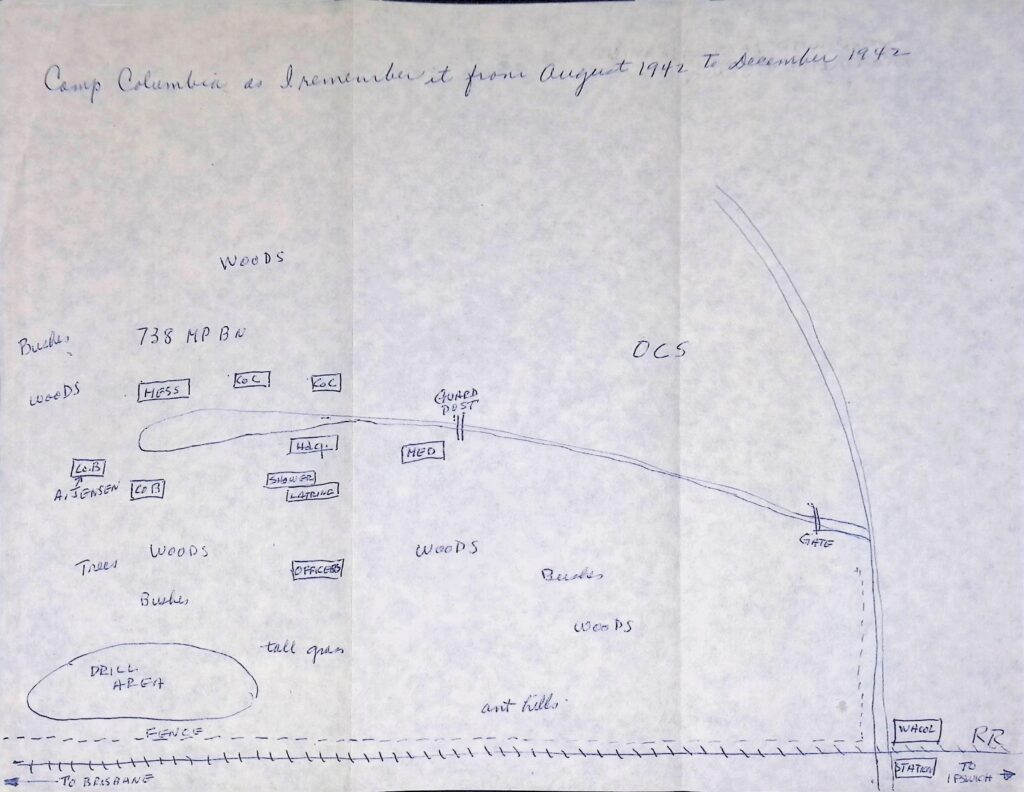 Camp Columbia as I remember it from August 1942 to December 1942
WOODS
Bushes
738 MP BN
OCS
WOODS
MESS
Co C
Co C
GUARD
POST
Hdq.
MED
Co. B
A. JENSEN
Co B
SHOWER
LATRINE
GATE
WOODS
WOODS
Trees
OFFICERS
Bushes
Bushes
WOODS
tall grass
DRILL
AREA
ant hills
FENCE
WACOL
RR
STATION
TO BRISBANE
TO
IPSWICH